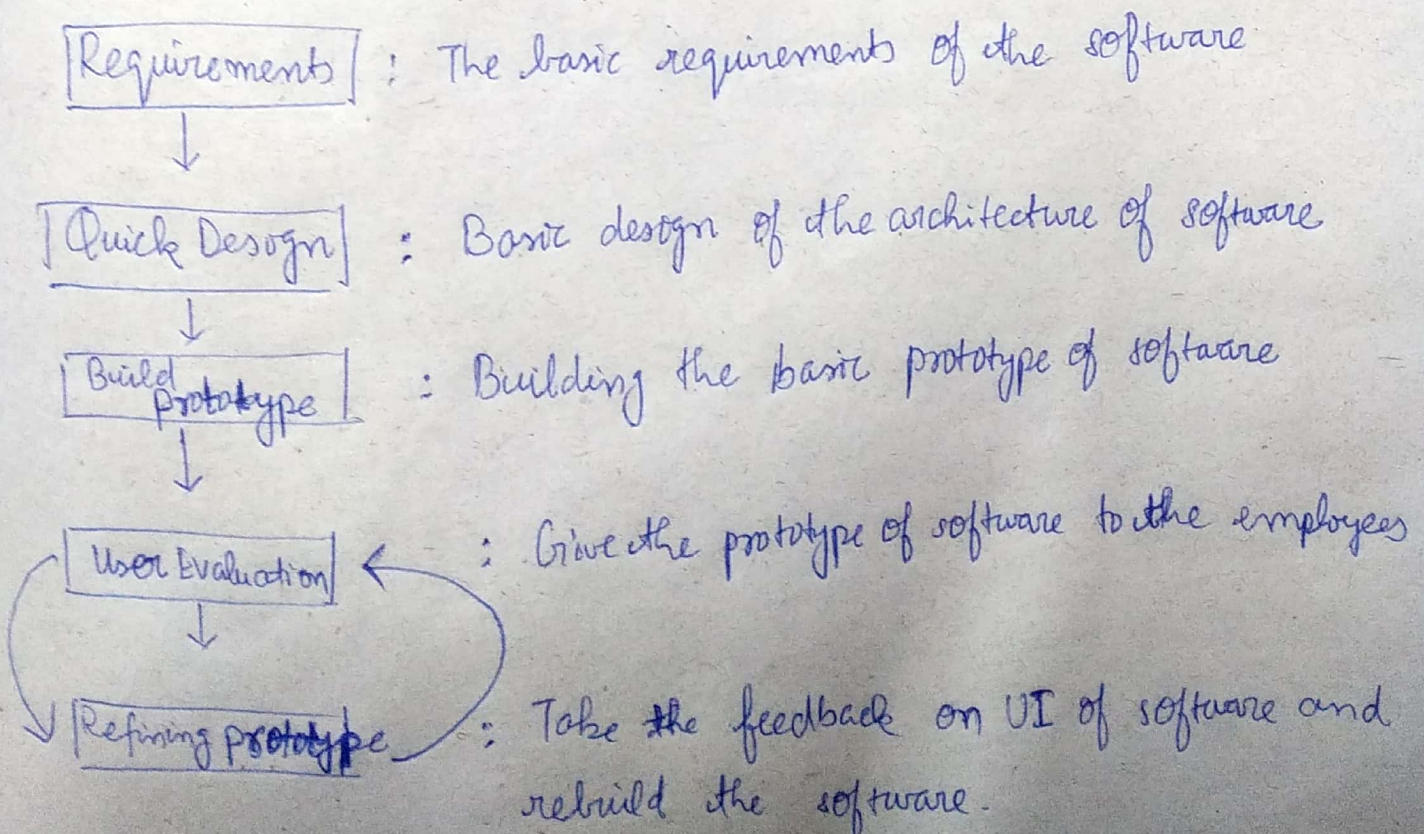 Requirements : The basic requirements of the software
Quick Design : Basic design of the architecture of software
Build
prototype : Building the basic prototype of software
User Evaluation : Give the prototype of software to the employees
Refining prototype : Take the feedback on UI of software and
rebuild the software.